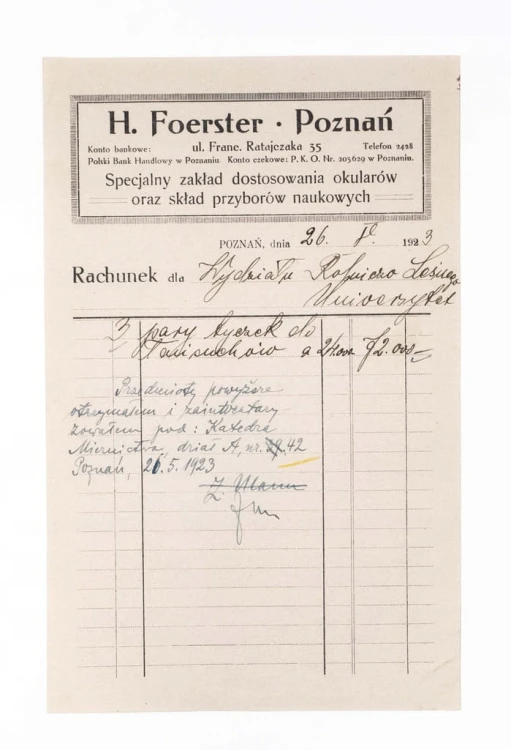 H. Foerster · Poznań
Konto bankowe: ul. Franc. Ratajczaka 35 Telefon 2428
Polski Bank Handlowy w Poznaniu Konto czekowe: P. K. O. Nr. 205629 w Poznaniu.
Specjalny zakład dostosowania okularów
oraz skład przyborów naukowych
POZNAŃ, dnia 26. V. 1923
Rachunek dla Wydziału Rolniczo Leśnego
Uniwersytet
3 pary tyczek do
a 24.000 72.000
Przedmioty powyższe
otrzymałem i zainwentary
zowałem pod: Katedra
Miernictwa, dział A, nr. 42
Poznań, 26.5.1923